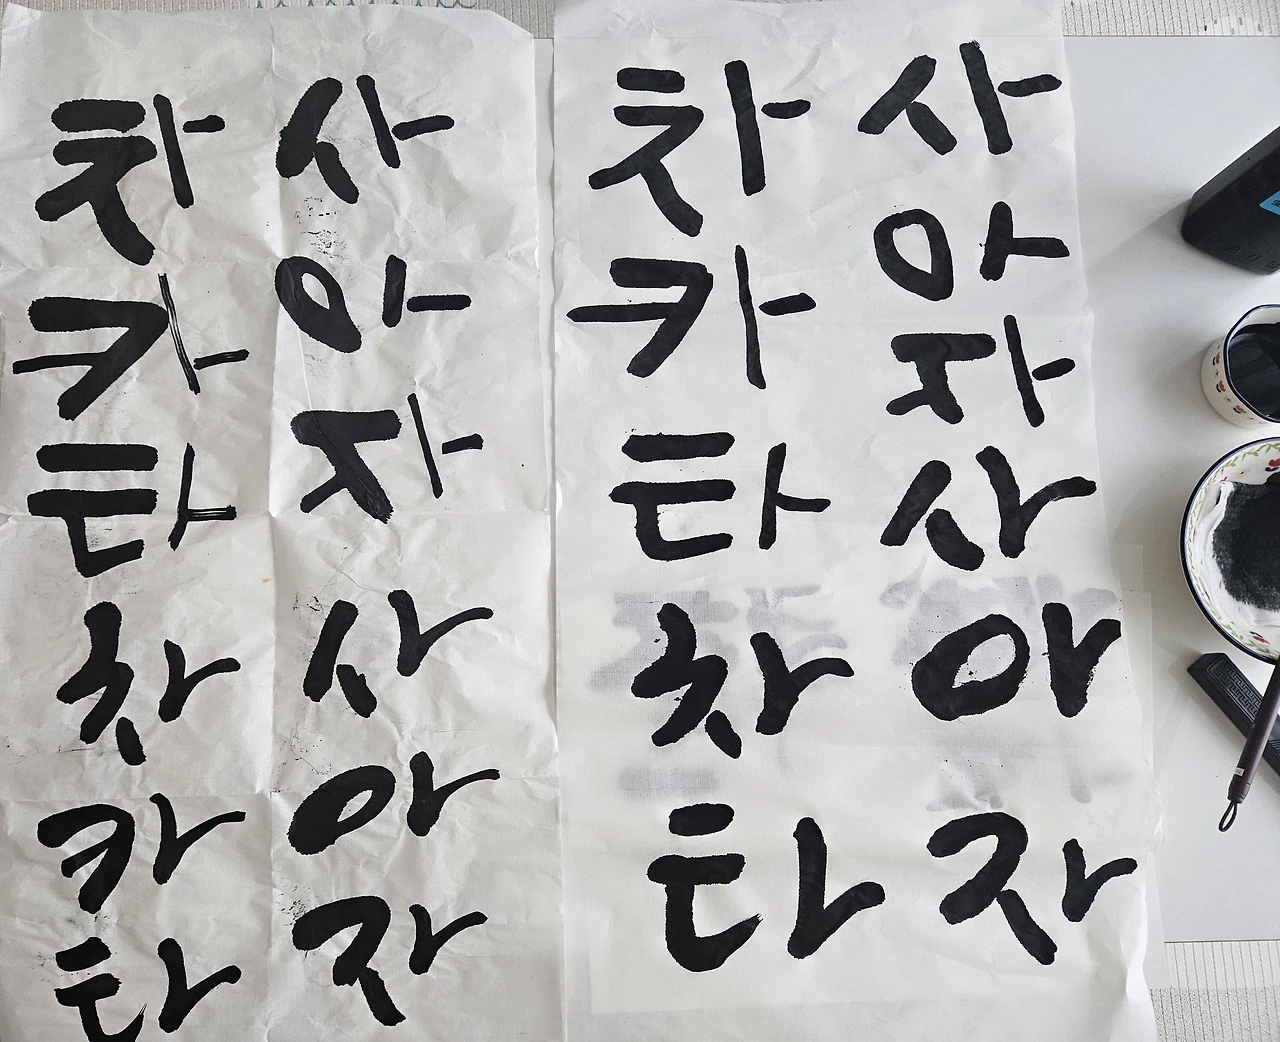 사아자사아자
차카타차타
사아자사아자
차카타차카타